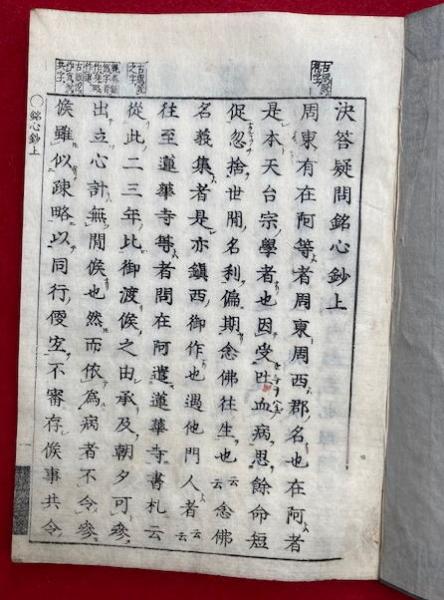 決答疑問銘心鈔上
周東有在阿等者周東周西郡名也在阿者
是本天台宗學者也因受吐血病思餘命短
促忽捨世間名利偏期念佛往生也云云念佛
名義集者是亦鎭西御作也遇他門人者云云
往至蓮華寺等者問在阿遣蓮華寺書札云
從此二三年比御渡候之由承及朝夕可參
出立心計無間候也然而依爲病者不令參
候雖似疎略以同行便宜不審存候事共令
○銘心鈔上